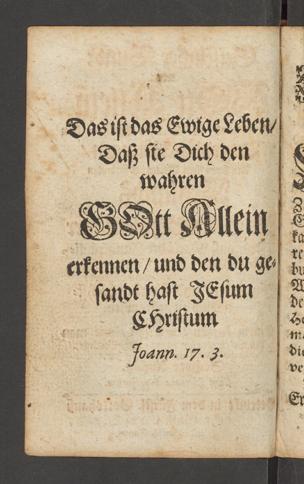 Das ist das Ewige Leben/
Daß sie Dich den
wahren
GOtt Allein
erkennen / und den du ge-
sandt hast JEsum
CHristum
Joann. 17. 3.